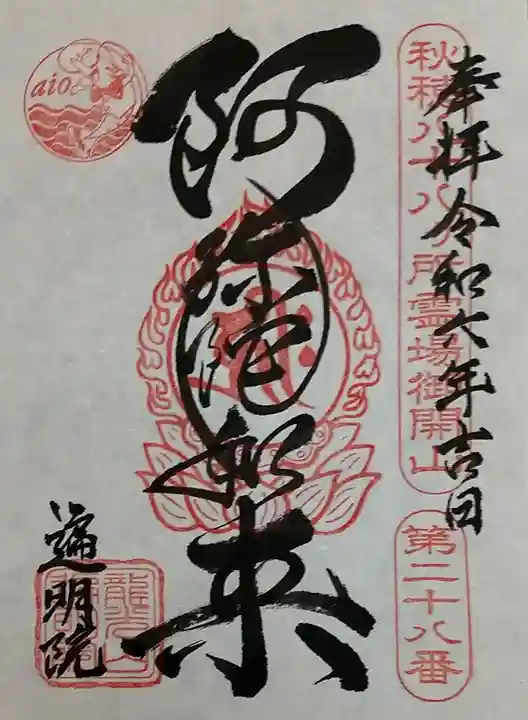 奉拝令和六年吉日
秋穂八十八ヶ所霊場御開山
第二十八番
阿弥陀如来
遍明院
aio